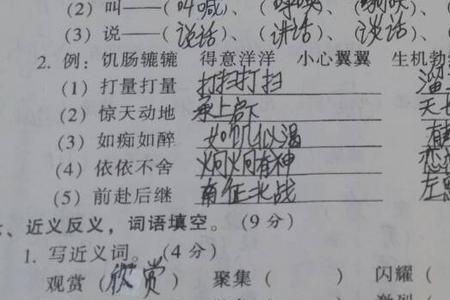 (2) 叫——(叫喊)、(
(3) 说——(说话)、(讲话)、(谈话)
2. 例：饥肠辘辘 得意洋洋 小心翼翼 生机勃
(1) 打量打量 打扫打扫 溜
(2) 惊天动地 承上启下 天
(3) 如痴如醉 如饥似渴
(4) 依依不舍 炯炯有神 恋
(5) 前赴后继 南征北战 左
、近义反义，词语填空。(9分)
1. 写近义词。(4分)
观赏(欣赏) 聚集( ) 闪耀(